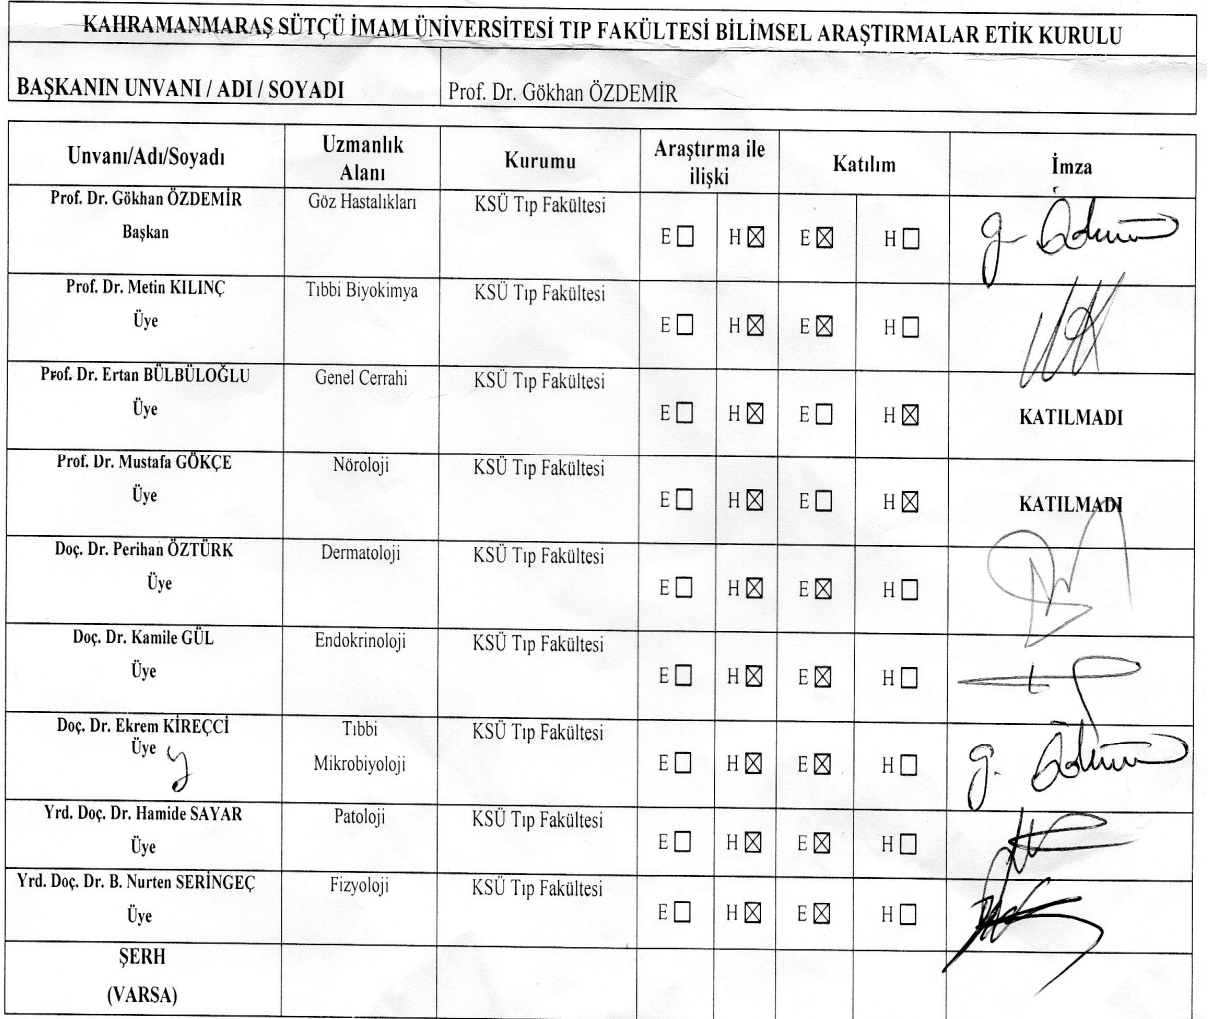 KAHRAMANMARAŞ SÜTÇÜ İMAM ÜNİVERSİTESİ TIP FAKÜLTESİ BİLİMSEL ARAŞTIRMALAR ETİK KURULU
BAŞKANIN UNVANI / ADI / SOYADI Prof. Dr. Gökhan ÖZDEMİR
Unvanı/Adı/Soyadı Uzmanlık Alanı Kurumu Araştırma ile ilişki Katılım İmza
Prof. Dr. Gökhan ÖZDEMİR Göz Hastalıkları KSÜ Tıp Fakültesi
Başkan E☐ H☒ E☒ H☐
Prof. Dr. Metin KILINÇ Tıbbi Biyokimya KSÜ Tıp Fakültesi
Üye E☐ H☒ E☒ H☐
Prof. Dr. Ertan BÜLBÜLOĞLU Genel Cerrahi KSÜ Tıp Fakültesi
Üye E☐ H☒ E☐ H☒ KATILMADI
Prof. Dr. Mustafa GÖKÇE Nöroloji KSÜ Tıp Fakültesi
Üye E☐ H☒ E☐ H☒ KATILMADI
Doç. Dr. Perihan ÖZTÜRK Dermatoloji KSÜ Tıp Fakültesi
Üye E☐ H☒ E☒ H☐
Doç. Dr. Kamile GÜL Endokrinoloji KSÜ Tıp Fakültesi
Üye E☐ H☒ E☒ H☐
Doç. Dr. Ekrem KİREÇCİ Tıbbi KSÜ Tıp Fakültesi
Üye Mikrobiyoloji E☐ H☒ E☒ H☐
Yrd. Doç. Dr. Hamide SAYAR Patoloji KSÜ Tıp Fakültesi
Üye E☐ H☒ E☒ H☐
Yrd. Doç. Dr. B. Nurten SERİNGEÇ Fizyoloji KSÜ Tıp Fakültesi
Üye E☐ H☒ E☒ H☐
ŞERH
(VARSA)